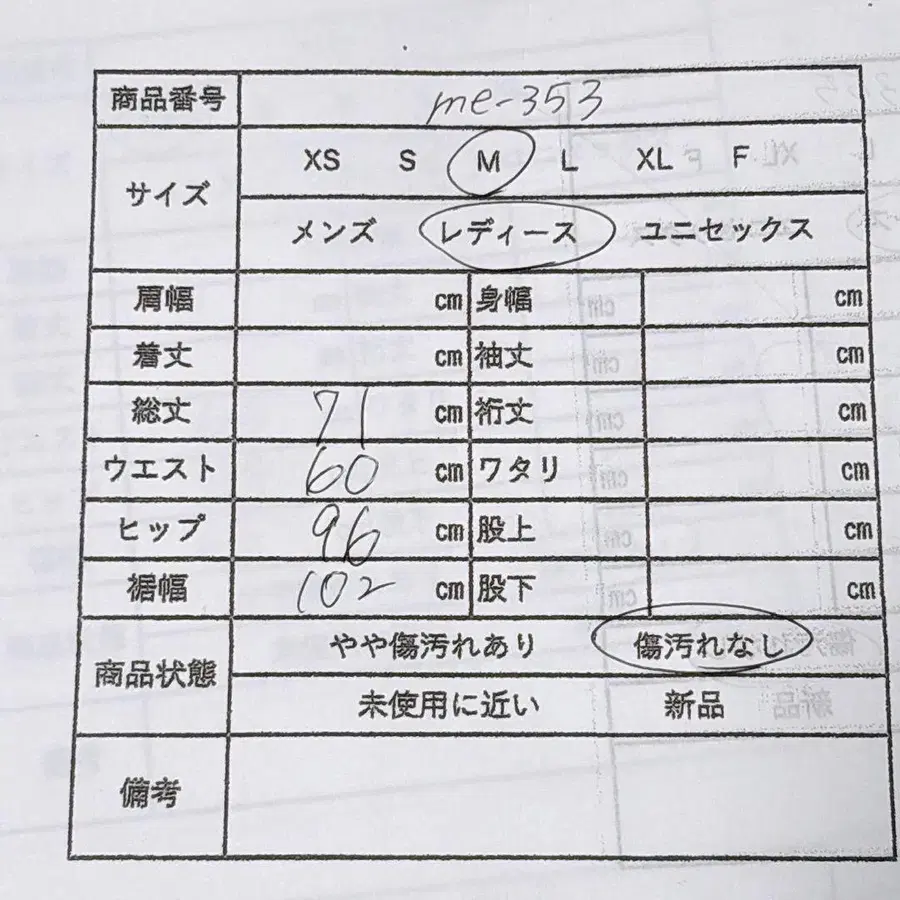 商品番号 me-353
サイズ XS S M L XL F
メンズ レディース ユニセックス
肩幅 cm 身幅 cm
着丈 cm 袖丈 cm
総丈 71 cm 裄丈 cm
ウエスト 60 cm ワタリ cm
ヒップ 96 cm 股上 cm
裾幅 102 cm 股下 cm
商品状態 やや傷汚れあり 傷汚れなし
未使用に近い 新品
備考